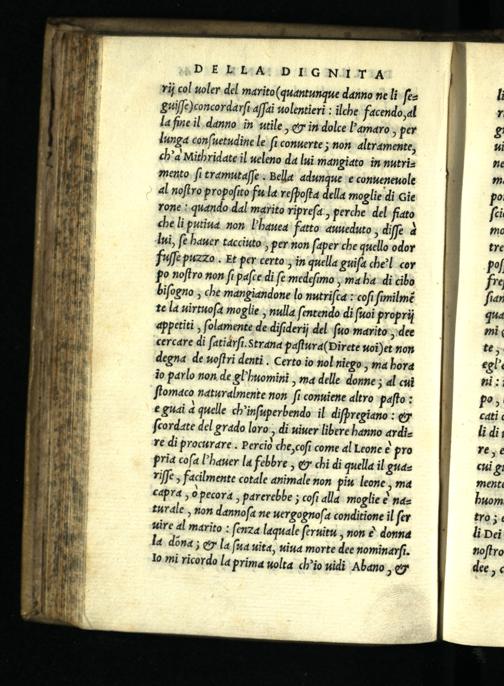 DELLA DIGNITA
rij col uoler del marito (quantunque danno ne li se-
guisse) concordarsi assai uolentieri : ilche facendo, al
la fine il danno in utile, & in dolce l'amaro, per
lunga consuetudine le si conuerte; non altramente,
ch'a Mithridate il ueleno da lui mangiato in nutri-
mento si tramutasse. Bella adunque e conueneuole
al nostro proposito fu la resposta della moglie di Gie
rone : quando dal marito ripresa, perche del fiato
che li putiua non l'hauea fatto aueduto, disse à
lui, se hauer tacciuto, per non saper che quello odor
fusse puzzo. Et per certo, in quella guisa che'l cor
po nostro non si pasce di se medesimo, ma ha di cibo
bisogno, che mangiandone lo nutrisca : cosi similmē
te la uirtuosa moglie, nulla sentendo di suoi proprij
appetiti, solamente de disiderij del suo marito, dee
cercare di satiarsi. Strana pastura (Direte uoi) et non
degna de uostri denti. Certo io nol niego, ma hora
io parlo non de gl'huomini, ma delle donne; al cui
stomaco naturalmente non si conuiene altro pasto :
e guai à quelle ch'insuperbendo il dispregiano : &
scordate del grado loro, di uiuer libere hanno ardi-
re di procurare. Perciò che, cosi come al Leone è pro
pria cosa l'hauer la febbre, & chi di quella il gua-
risse, facilmente cotale animale non piu leone, ma
capra, ò pecora, parerebbe; cosi alla moglie è na-
turale, non dannosa ne uergognosa conditione il ser
uire al marito : senza laquale seruitu, non è donna
la dōna; & la sua uita, uiua morte dee nominarsi.
Io mi ricordo la prima uolta ch'io uidi Abano, &